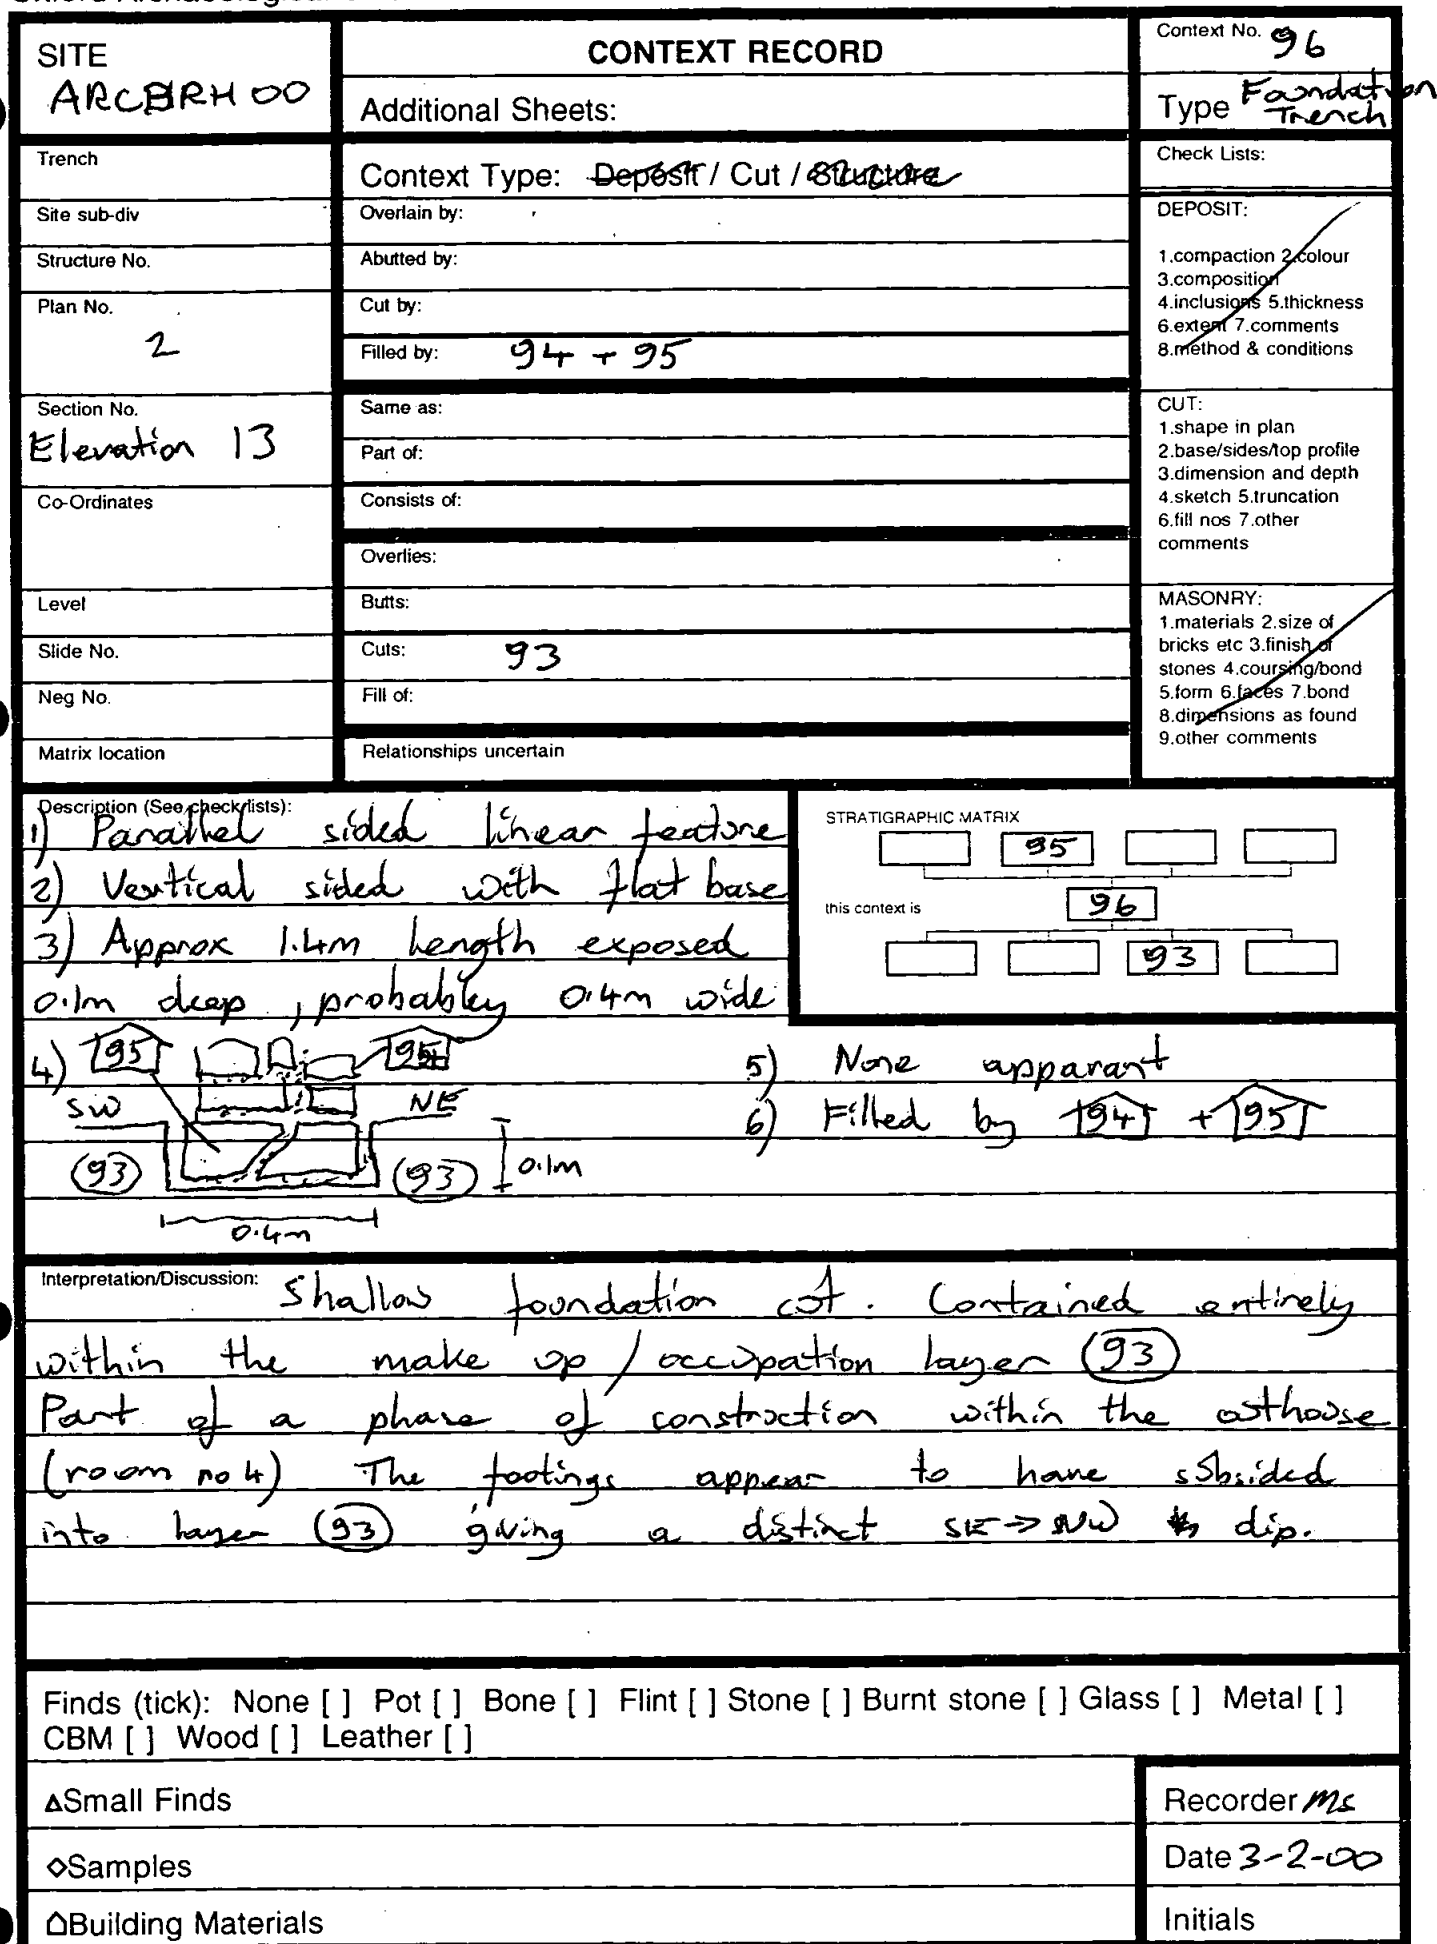 SITE
ARCBRH 00
CONTEXT RECORD
Additional Sheets:
Context No. 96
Type Foundation
Trench
Trench
Site sub-div
Structure No.
Plan No.
2
Section No.
Elevation 13
Co-Ordinates
Level
Slide No.
Neg No.
Matrix location
Context Type: Deposit / Cut / Structure
Overlain by:
Abutted by:
Cut by:
Filled by: 94 + 95
Same as:
Part of:
Consists of:
Overlies:
Butts:
Cuts: 93
Fill of:
Relationships uncertain
Check Lists:
DEPOSIT:
1.compaction 2.colour
3.composition
4.inclusions 5.thickness
6.extent 7.comments
8.method & conditions
CUT:
1.shape in plan
2.base/sides/top profile
3.dimension and depth
4.sketch 5.truncation
6.fill nos 7.other
comments
MASONRY:
1.materials 2.size of
bricks etc 3.finish of
stones 4.coursing/bond
5.form 6.faces 7.bond
8.dimensions as found
9.other comments
Description (See check lists):
1) Parallel sided linear feature
2) Vertical sided with flat base
3) Approx 1.4m length exposed
0.1m deep, probabley 0.4m wide
STRATIGRAPHIC MATRIX
95
this context is 96
93
4) 95
SW NE
(93) (93) 0.1m
0.4m
5) None apparant
6) Filled by 94 + 95
Interpretation/Discussion: Shallow foundation cut. Contained entirely
within the make up / occupation layer (93)
Part of a phase of construction within the osthouse
(room no 4) The footings appear to have subsided
into layer (93) giving a distinct SE -> NW dip.
Finds (tick): None [ ] Pot [ ] Bone [ ] Flint [ ] Stone [ ] Burnt stone [ ] Glass [ ] Metal [ ]
CBM [ ] Wood [ ] Leather [ ]
Small Finds
Samples
Building Materials
Recorder MS
Date 3-2-00
Initials